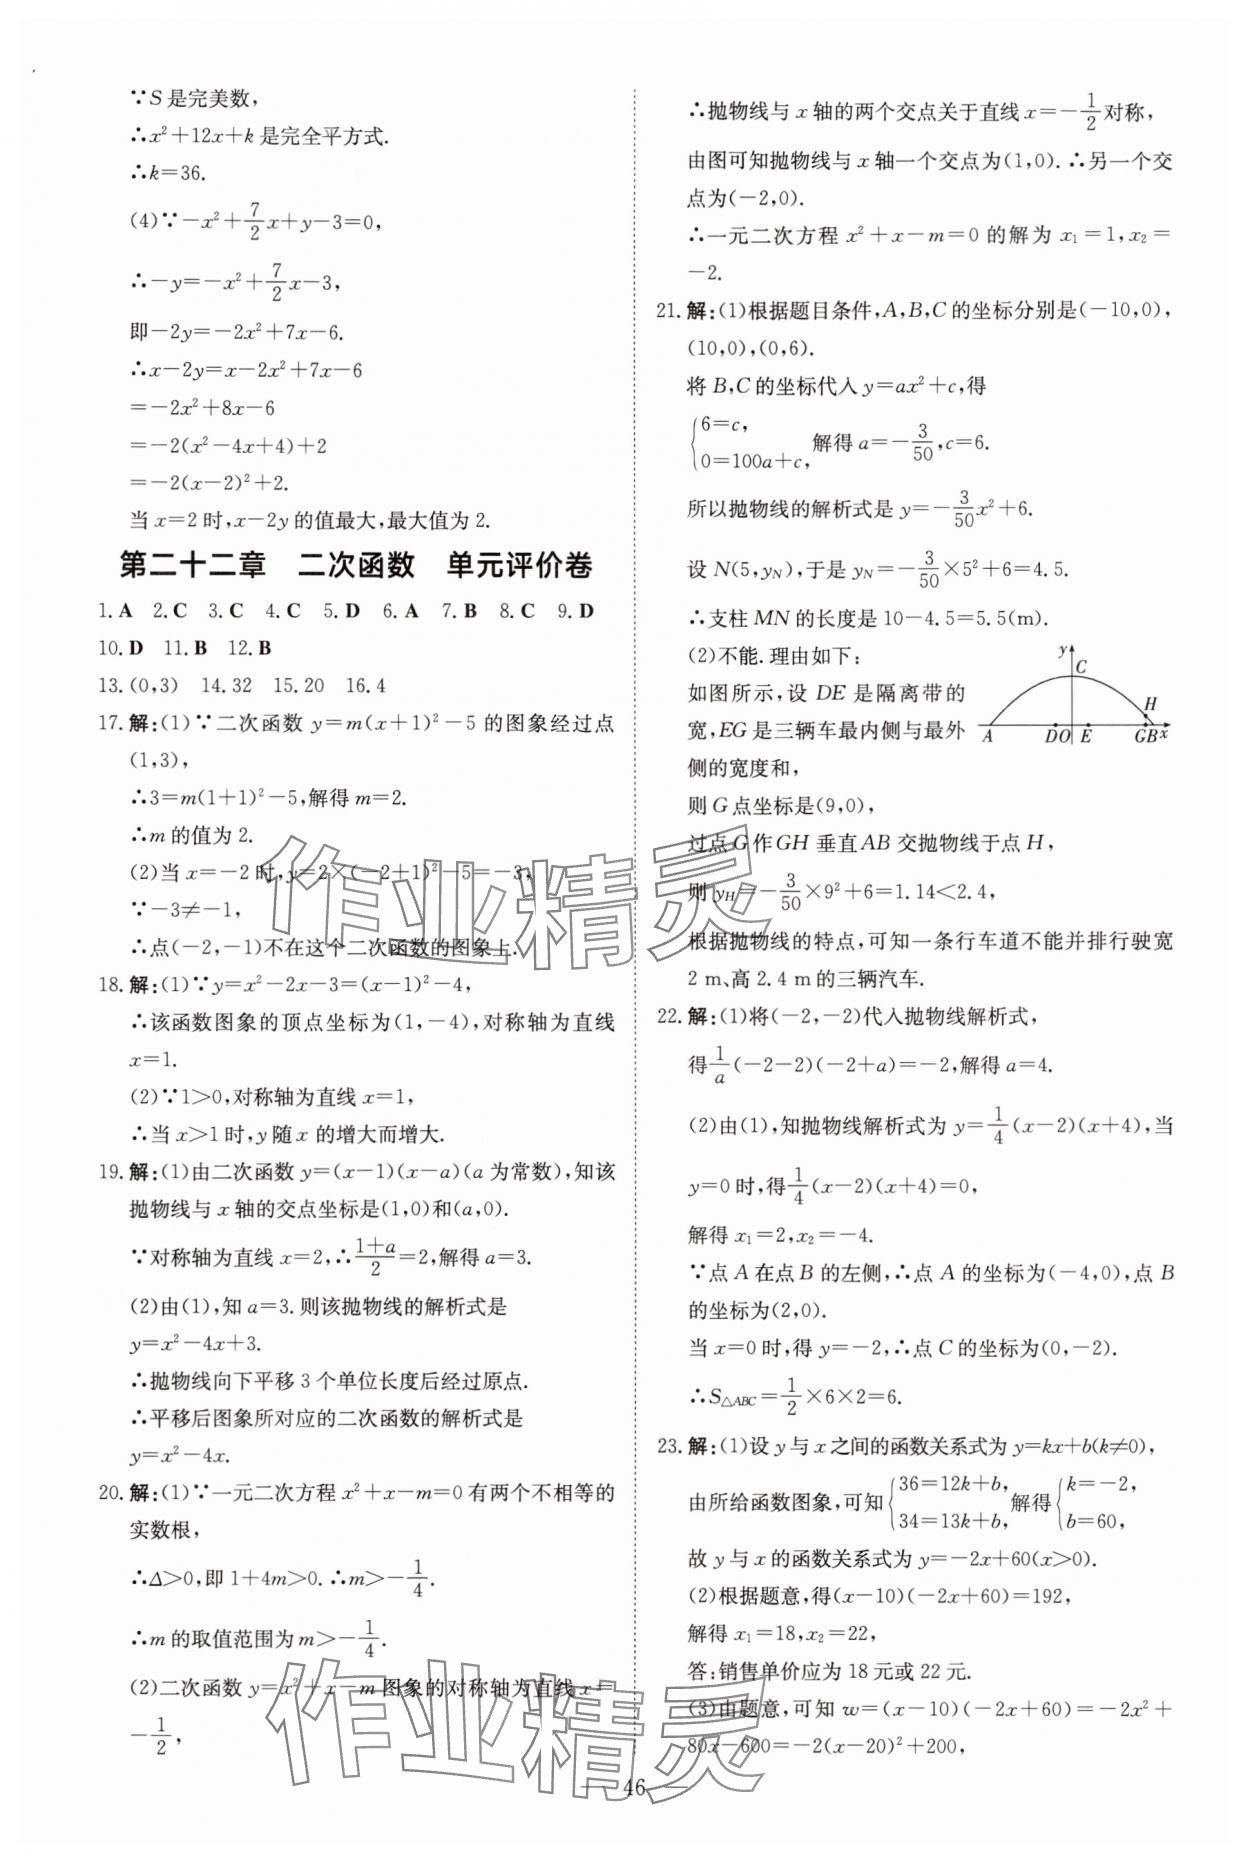 ∵S是完美数,
∴x²+12x+k是完全平方式.
∴k=36.
(4)∵-x²+7/2x+y-3=0,
∴-y=-x²+7/2x-3,
即-2y=-2x²+7x-6.
∴x-2y=x-2x²+7x-6
=-2x²+8x-6
=-2(x²-4x+4)+2
=-2(x-2)²+2.
当x=2时,x-2y的值最大,最大值为2.
第二十二章 二次函数 单元评价卷
1.A 2.C 3.C 4.C 5.D 6.A 7.B 8.C 9.D
10.D 11.B 12.B
13.(0,3) 14.32 15.20 16.4
17.解:(1)∵二次函数y=m(x+1)²-5的图象经过点
(1,3),
∴3=m(1+1)²-5,解得m=2.
∴m的值为2.
(2)当x=-2时,y=2×(-2+1)²-5=-3,
∵-3≠-1,
∴点(-2,-1)不在这个二次函数的图象上.
18.解:(1)∵y=x²-2x-3=(x-1)²-4,
∴该函数图象的顶点坐标为(1,-4),对称轴为直线
x=1.
(2)∵1>0,对称轴为直线x=1,
∴当x>1时,y随x的增大而增大.
19.解:(1)由二次函数y=(x-1)(x-a)(a为常数),知该
抛物线与x轴的交点坐标是(1,0)和(a,0).
∵对称轴为直线x=2,∴(1+a)/2=2,解得a=3.
(2)由(1),知a=3.则该抛物线的解析式是
y=x²-4x+3.
∴抛物线向下平移3个单位长度后经过原点.
∴平移后图象所对应的二次函数的解析式是
y=x²-4x.
20.解:(1)∵一元二次方程x²+x-m=0有两个不相等的
实数根,
∴Δ>0,即1+4m>0.∴m>-1/4.
∴m的取值范围为m>-1/4.
(2)二次函数y=x²+x-m图象的对称轴为直线x=
-1/2,
∴抛物线与x轴的两个交点关于直线x=-1/2对称,
由图可知抛物线与x轴一个交点为(1,0).∴另一个交
点为(-2,0).
∴一元二次方程x²+x-m=0的解为x₁=1,x₂=
-2.
21.解:(1)根据题目条件,A,B,C的坐标分别是(-10,0),
(10,0),(0,6).
将B,C的坐标代入y=ax²+c,得
{6=c,
0=100a+c, 解得a=-3/50,c=6.
所以抛物线的解析式是y=-3/50x²+6.
设N(5,y_N),于是y_N=-3/50×5²+6=4.5.
∴支柱MN的长度是10-4.5=5.5(m).
(2)不能.理由如下:
如图所示,设DE是隔离带的
宽,EG是三辆车最内侧与最外
侧的宽度和,
y C H A DO E GB x
则G点坐标是(9,0),
过点G作GH垂直AB交抛物线于点H,
则y_H=-3/50×9²+6=1.14<2.4,
根据抛物线的特点,可知一条行车道不能并排行驶宽
2 m、高2.4 m的三辆汽车.
22.解:(1)将(-2,-2)代入抛物线解析式,
得1/a(-2-2)(-2+a)=-2,解得a=4.
(2)由(1),知抛物线解析式为y=1/4(x-2)(x+4),当
y=0时,得1/4(x-2)(x+4)=0,
解得x₁=2,x₂=-4.
∵点A在点B的左侧,∴点A的坐标为(-4,0),点B
的坐标为(2,0).
当x=0时,得y=-2,∴点C的坐标为(0,-2).
∴S△ABC=1/2×6×2=6.
23.解:(1)设y与x之间的函数关系式为y=kx+b(k≠0),
由所给函数图象,可知{36=12k+b, 34=13k+b, 解得{k=-2, b=60,
故y与x的函数关系式为y=-2x+60(x>0).
(2)根据题意,得(x-10)(-2x+60)=192,
解得x₁=18,x₂=22,
答:销售单价应为18元或22元.
(3)由题意,可知w=(x-10)(-2x+60)=-2x²+
80x-600=-2(x-20)²+200,
46
作业精灵
作业精灵